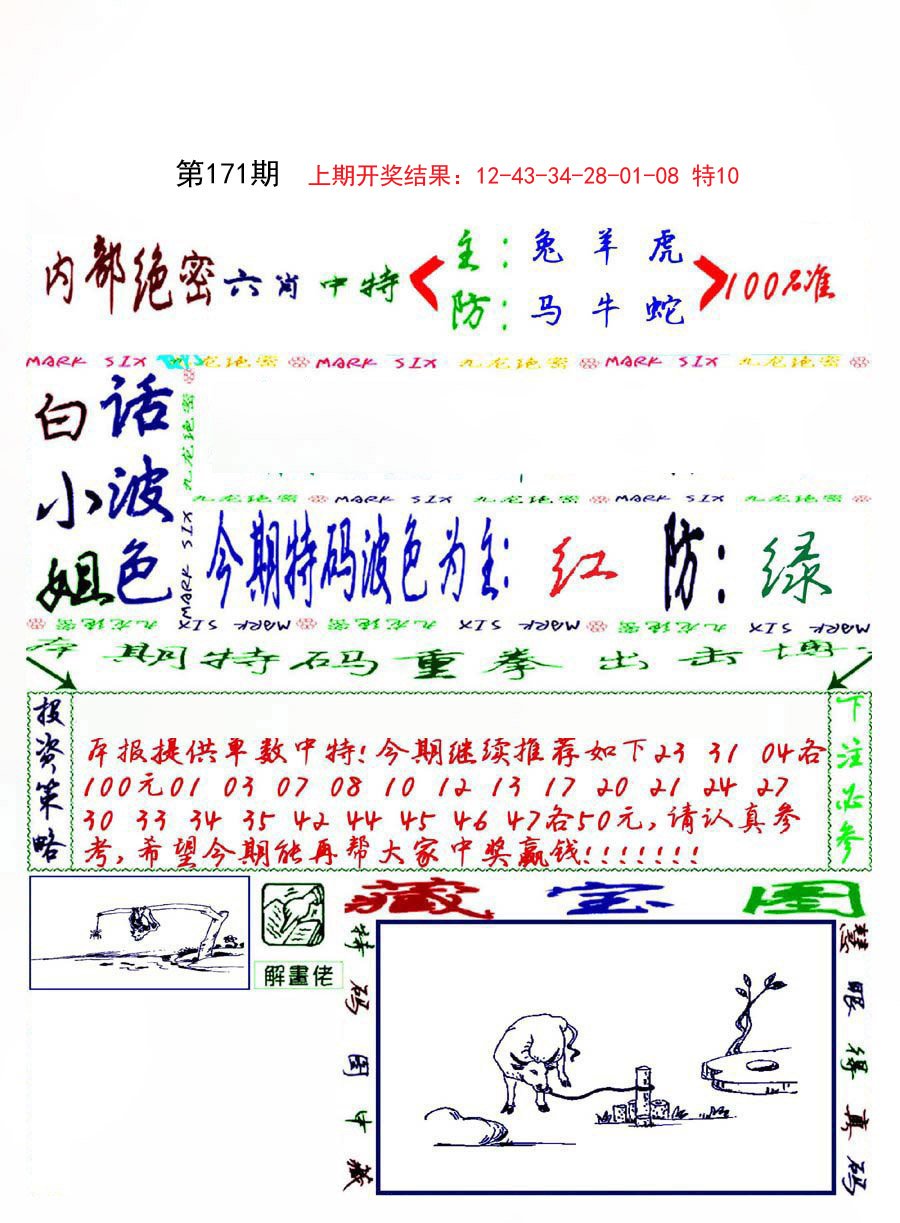 第171期 上期开奖结果：12-43-34-28-01-08 特10
内部绝密六肖中特
主：兔 羊 虎
防：马 牛 蛇
100%准
MARK SIX 九龙绝密 MARK SIX 九龙绝密 MARK SIX 九龙绝密
白话
小波
姐色
九龙绝密
MARK SIX
九龙绝密 MARK SIX 九龙绝密 MARK SIX 九龙绝密
今期特码波色为主：红 防：绿
九龙绝密 MARK SIX 九龙绝密 MARK SIX 九龙绝密 MARK SIX
本期特码重拳出击博
投资策略
本报提供单数中特!今期继续推荐如下23 31 04各
100元01 03 07 08 10 12 13 17 20 21 24 27
30 33 34 35 42 44 45 46 47各50元,请认真参
考,希望今期能再帮大家中奖赢钱!!!!!!!
下注必参
解畫佬
藏宝图
特码图中藏
慧眼得真码